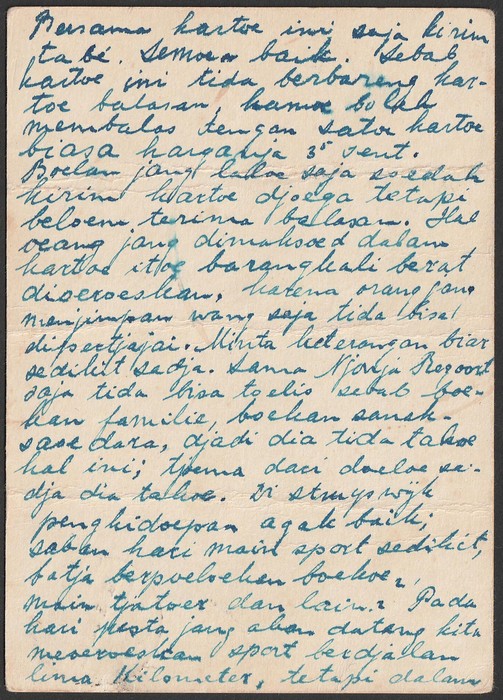 Bersama kartoe ini saja kirim
tabé. Semoea baik. Sebab
kartoe ini tida berbareng kar-
toe balasan, kamoe boleh
membalas dengan satoe kartoe
biasa harganja 3⁵ sent.
Boelan jang laloe saja soedah
kirim kartoe djoega tetapi
beloem terima balasan. Hal
oeang jang dimaksoed dalam
kartoe itoe barangkali berat
dioeroeskan, karena orang jang
menjimpan wang saja tida bisa
dipertjajai. Minta keterangan biar
sedikit sadja. Sama Njonja
saja tida bisa toelis sebab boe-
kan familie, boekan sanak-
saoedara, djadi dia tida tahoe
hal ini; tjoema dari doeloe sa-
dja dia tahoe. Di Struyswyk
penghidoepan agak baik;
saban hari main sport sedikit,
batja berpoeloehan boekoe²,
main tjatoer dan lain². Pada
hari pesta jang akan datang kita
meoeroeskan sport berdjalan
lima Kilometer, tetapi dalam